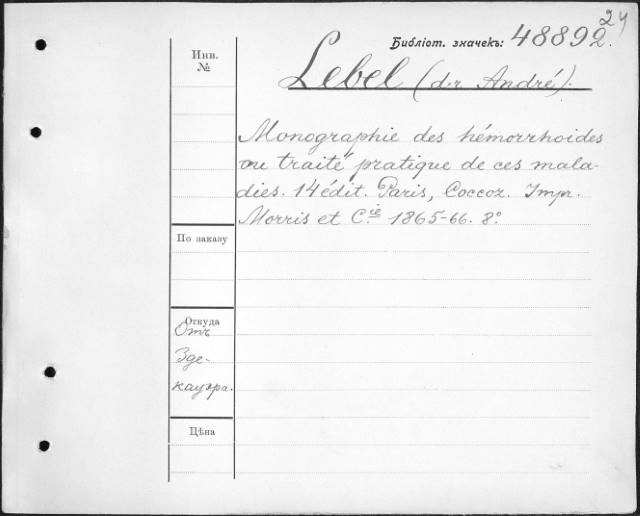 24
Библіот. значекъ: 48892.
Инв.
№
Lebel (d-r André).
Monographie des hémorrhoides
ou traité pratique de ces mala-
dies. 14 édit. Paris, Coccoz. Impr.
Morris et C.ie 1865-66. 8°
По заказу
Откуда
Отъ
Зде-
кауэра.
Цѣна